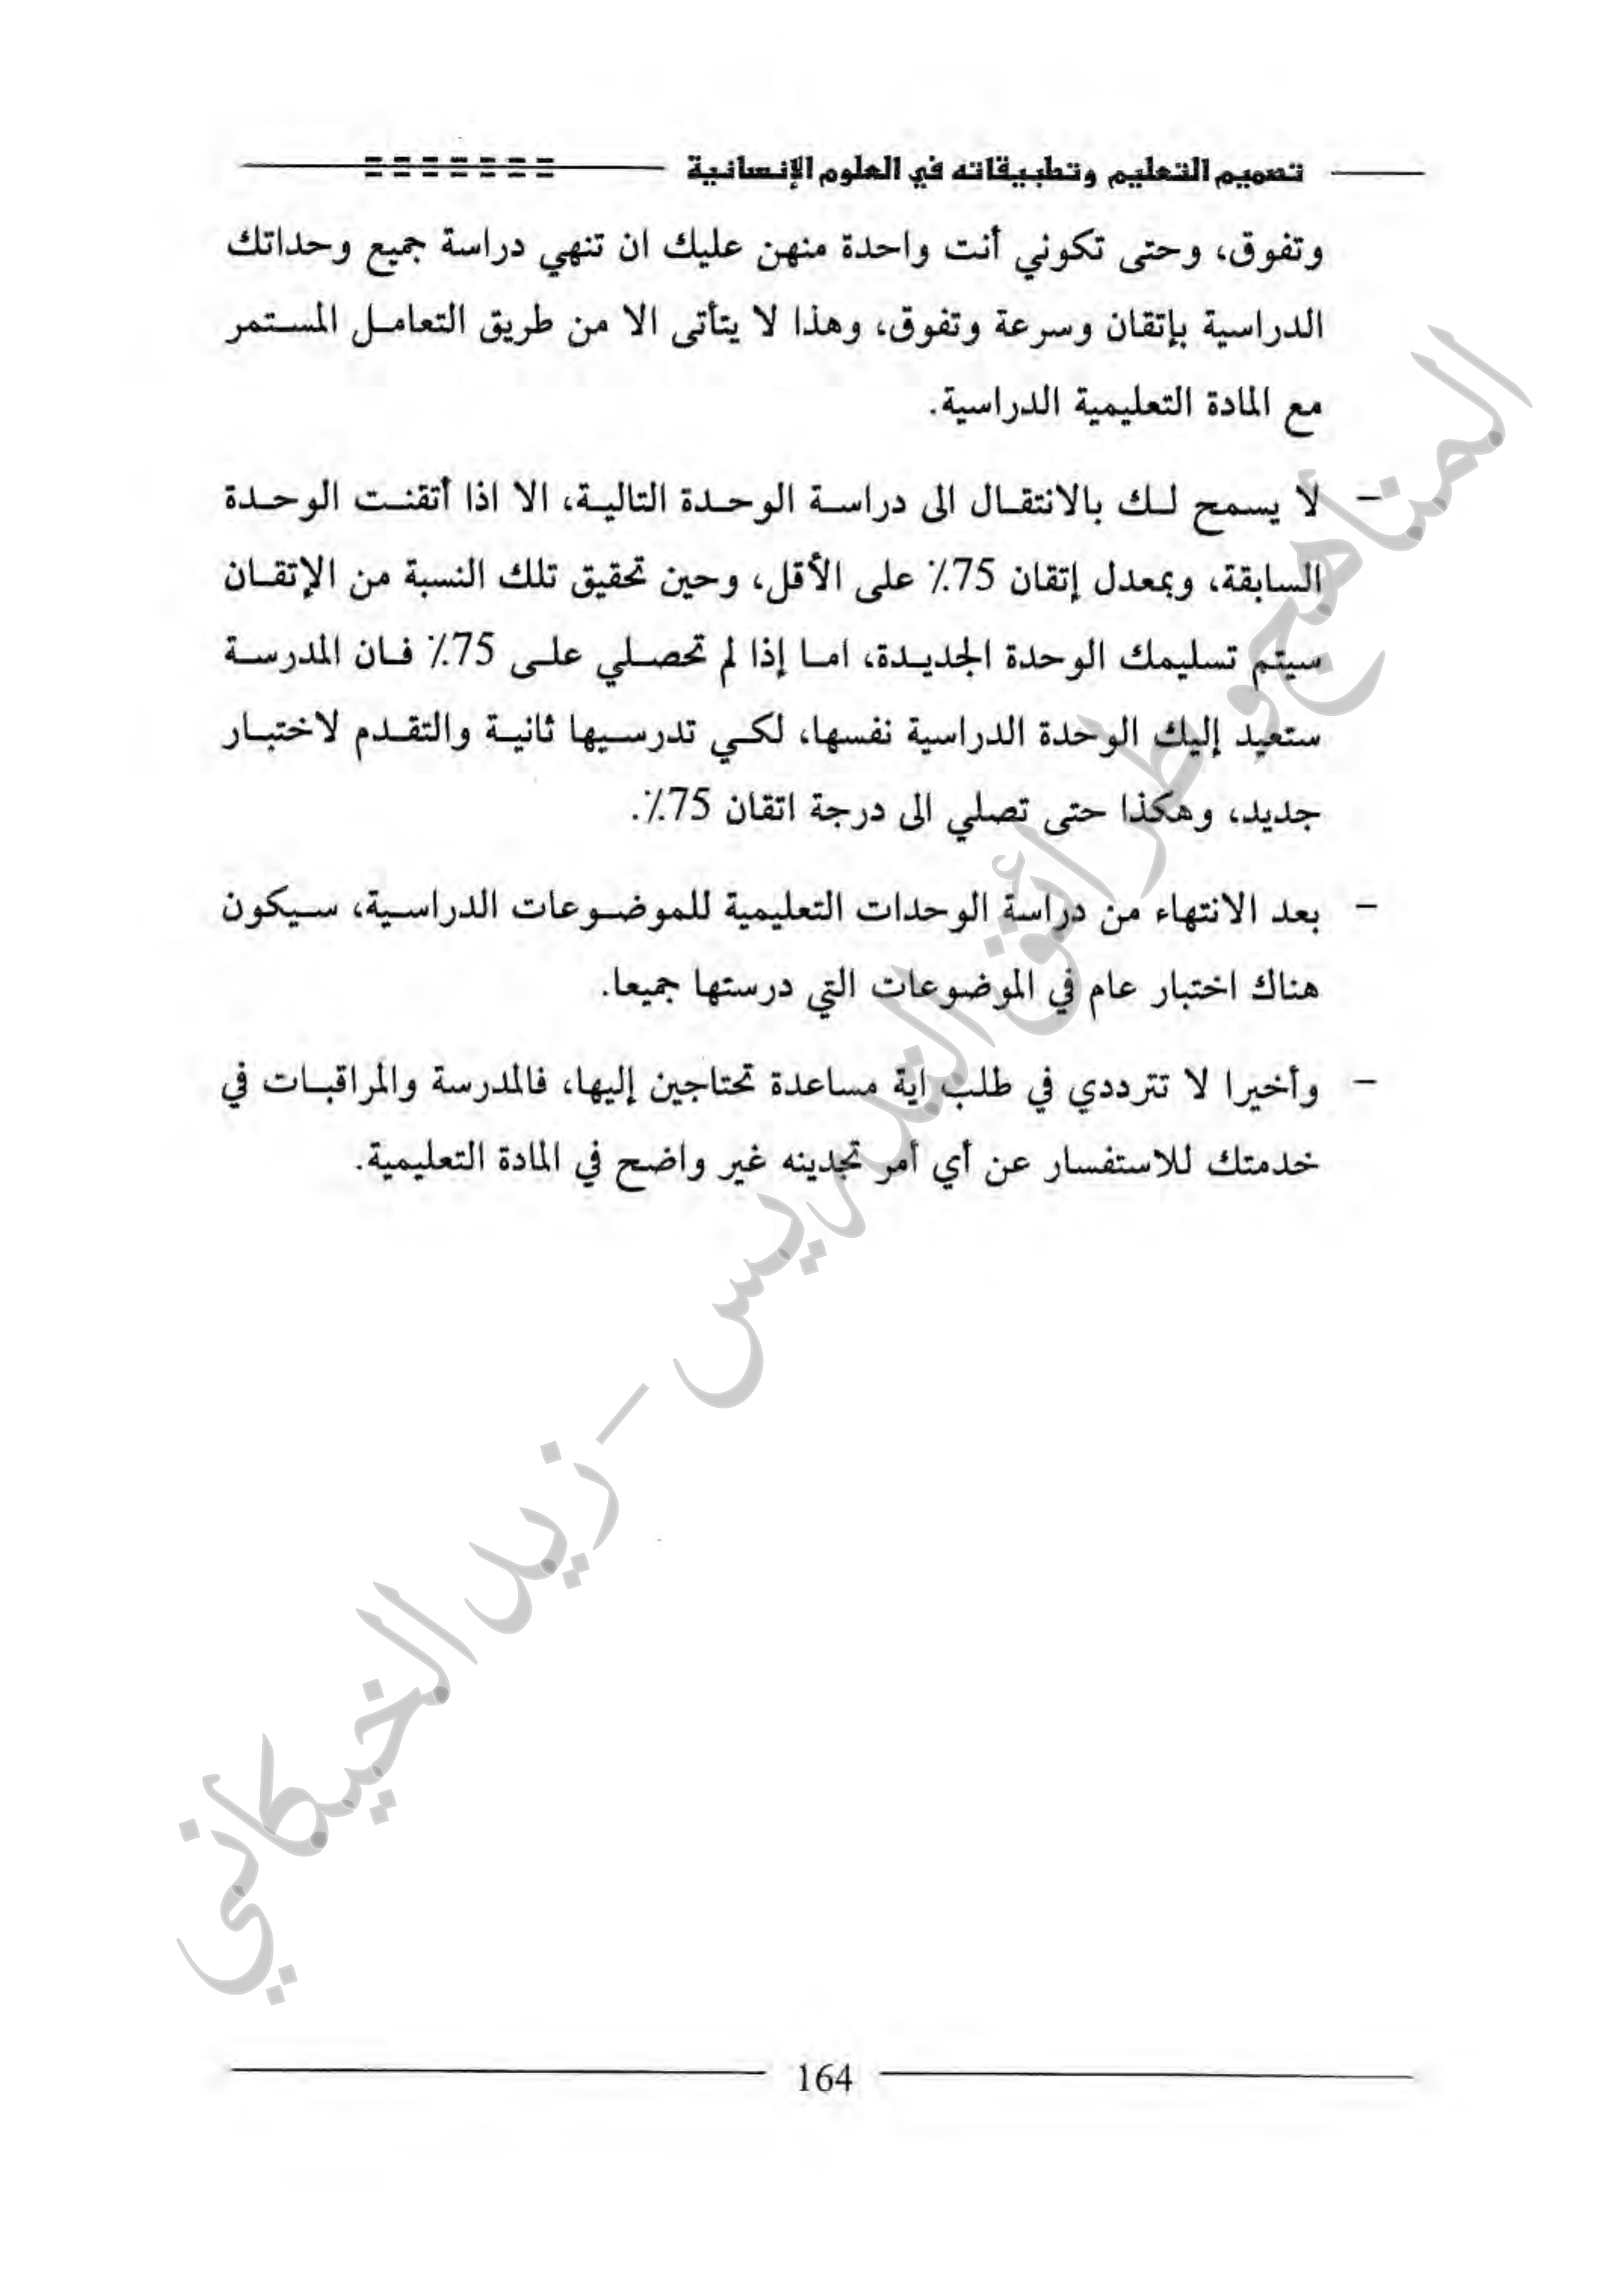 تصميم التعليم وتطبيقاته في العلوم الإنسانية
وتفوق، وحتى تكوني أنت واحدة منهن عليك ان تنهي دراسة جميع وحداتك
الدراسية بإتقان وسرعة وتفوق، وهذا لا يتأتى الا من طريق التعامل المستمر
مع المادة التعليمية الدراسية.
– لا يسمح لك بالانتقال الى دراسة الوحدة التالية، الا اذا أتقنت الوحدة
السابقة، وبمعدل إتقان 75٪ على الأقل، وحين تحقيق تلك النسبة من الإتقان
سيتم تسليمك الوحدة الجديدة، اما إذا لم تحصلي على 75٪ فان المدرسة
ستعيد إليك الوحدة الدراسية نفسها، لكي تدرسيها ثانية والتقدم لاختبار
جديد، وهكذا حتى تصلي الى درجة اتقان 75٪.
– بعد الانتهاء من دراسة الوحدات التعليمية للموضوعات الدراسية، سيكون
هناك اختبار عام في الموضوعات التي درستها جميعا.
– وأخيرا لا تترددي في طلب اية مساعدة تحتاجين إليها، فالمدرسة والمراقبات في
خدمتك للاستفسار عن أي أمر تجدينه غير واضح في المادة التعليمية.
المناهج وطرائق التدريس – زيد الخيكاني
164